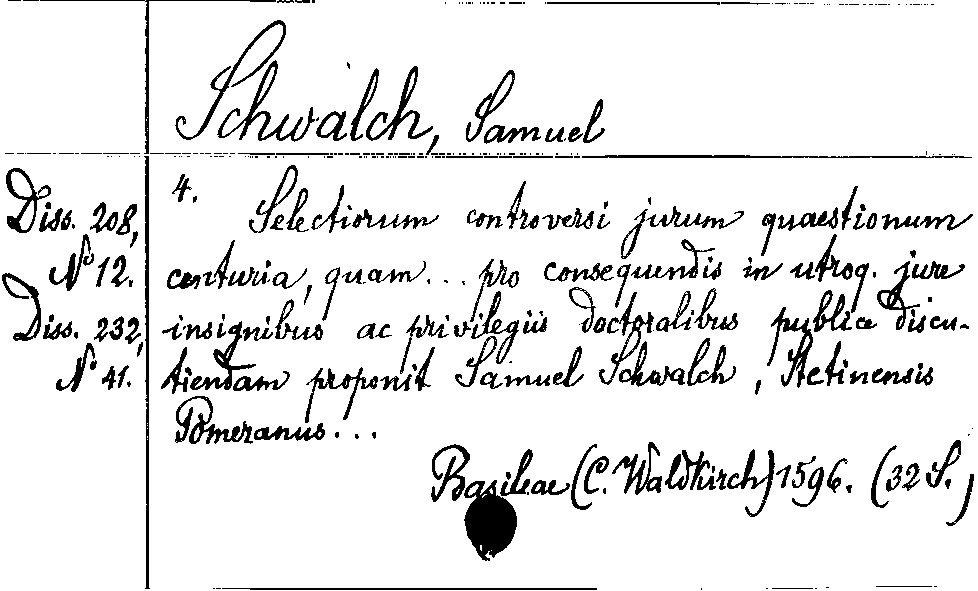 Schwalch, Samuel
Diss. 208,
N° 12.
Diss. 232,
N° 41.
4. Selectiorum controversi jurum quaestionum
centuria, quam... pro consequendis in utroq. jure
insignibus ac privilegiis doctoralibus publice discu-
tiendam proponit Samuel Schwalch, Stetinensis
Pomeranus...
Basileae (C. Waldkirch) 1596. (32 S.)